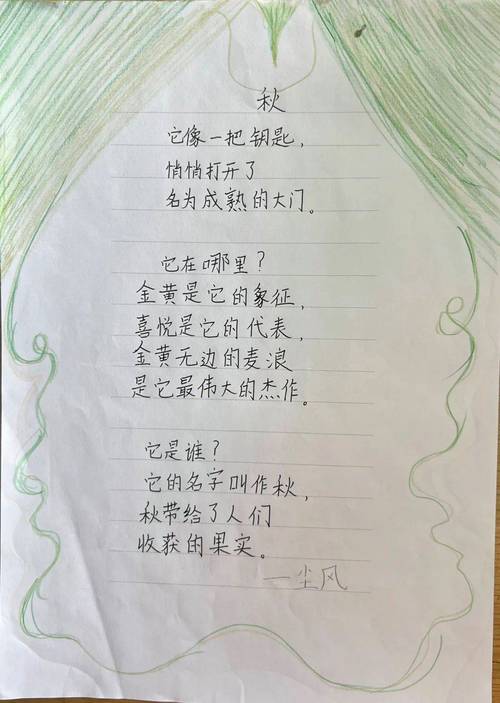 秋
它像一把钥匙，
悄悄打开了
名为成熟的大门。
它在哪里？
金黄是它的象征，
喜悦是它的代表，
金黄无边的麦浪
是它最伟大的杰作。
它是谁？
它的名字叫作秋，
秋带给了人们
收获的果实。
一尘风